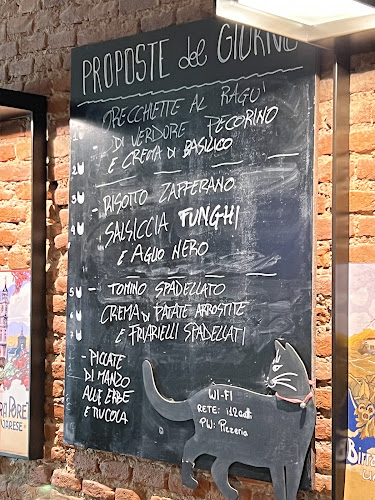 PROPOSTE del GIORNO
ORECCHIETTE AL RAGU'
DI VERDURE PECORINO
E CREMA DI BASILICO
- RISOTTO ZAFFERANO
SALSICCIA FUNGHI
E AGLIO NERO
- TOMINO SPADELLATO
CREMA DI PATATE ARROSTITE
E FRIARIELLI SPADELLATI
- PICCATE
DI MANZO
ALLE ERBE
E RUCOLA
WI-FI
RETE: i12gatti
PW: Pizzeria
1
2
3
4
5
6
7